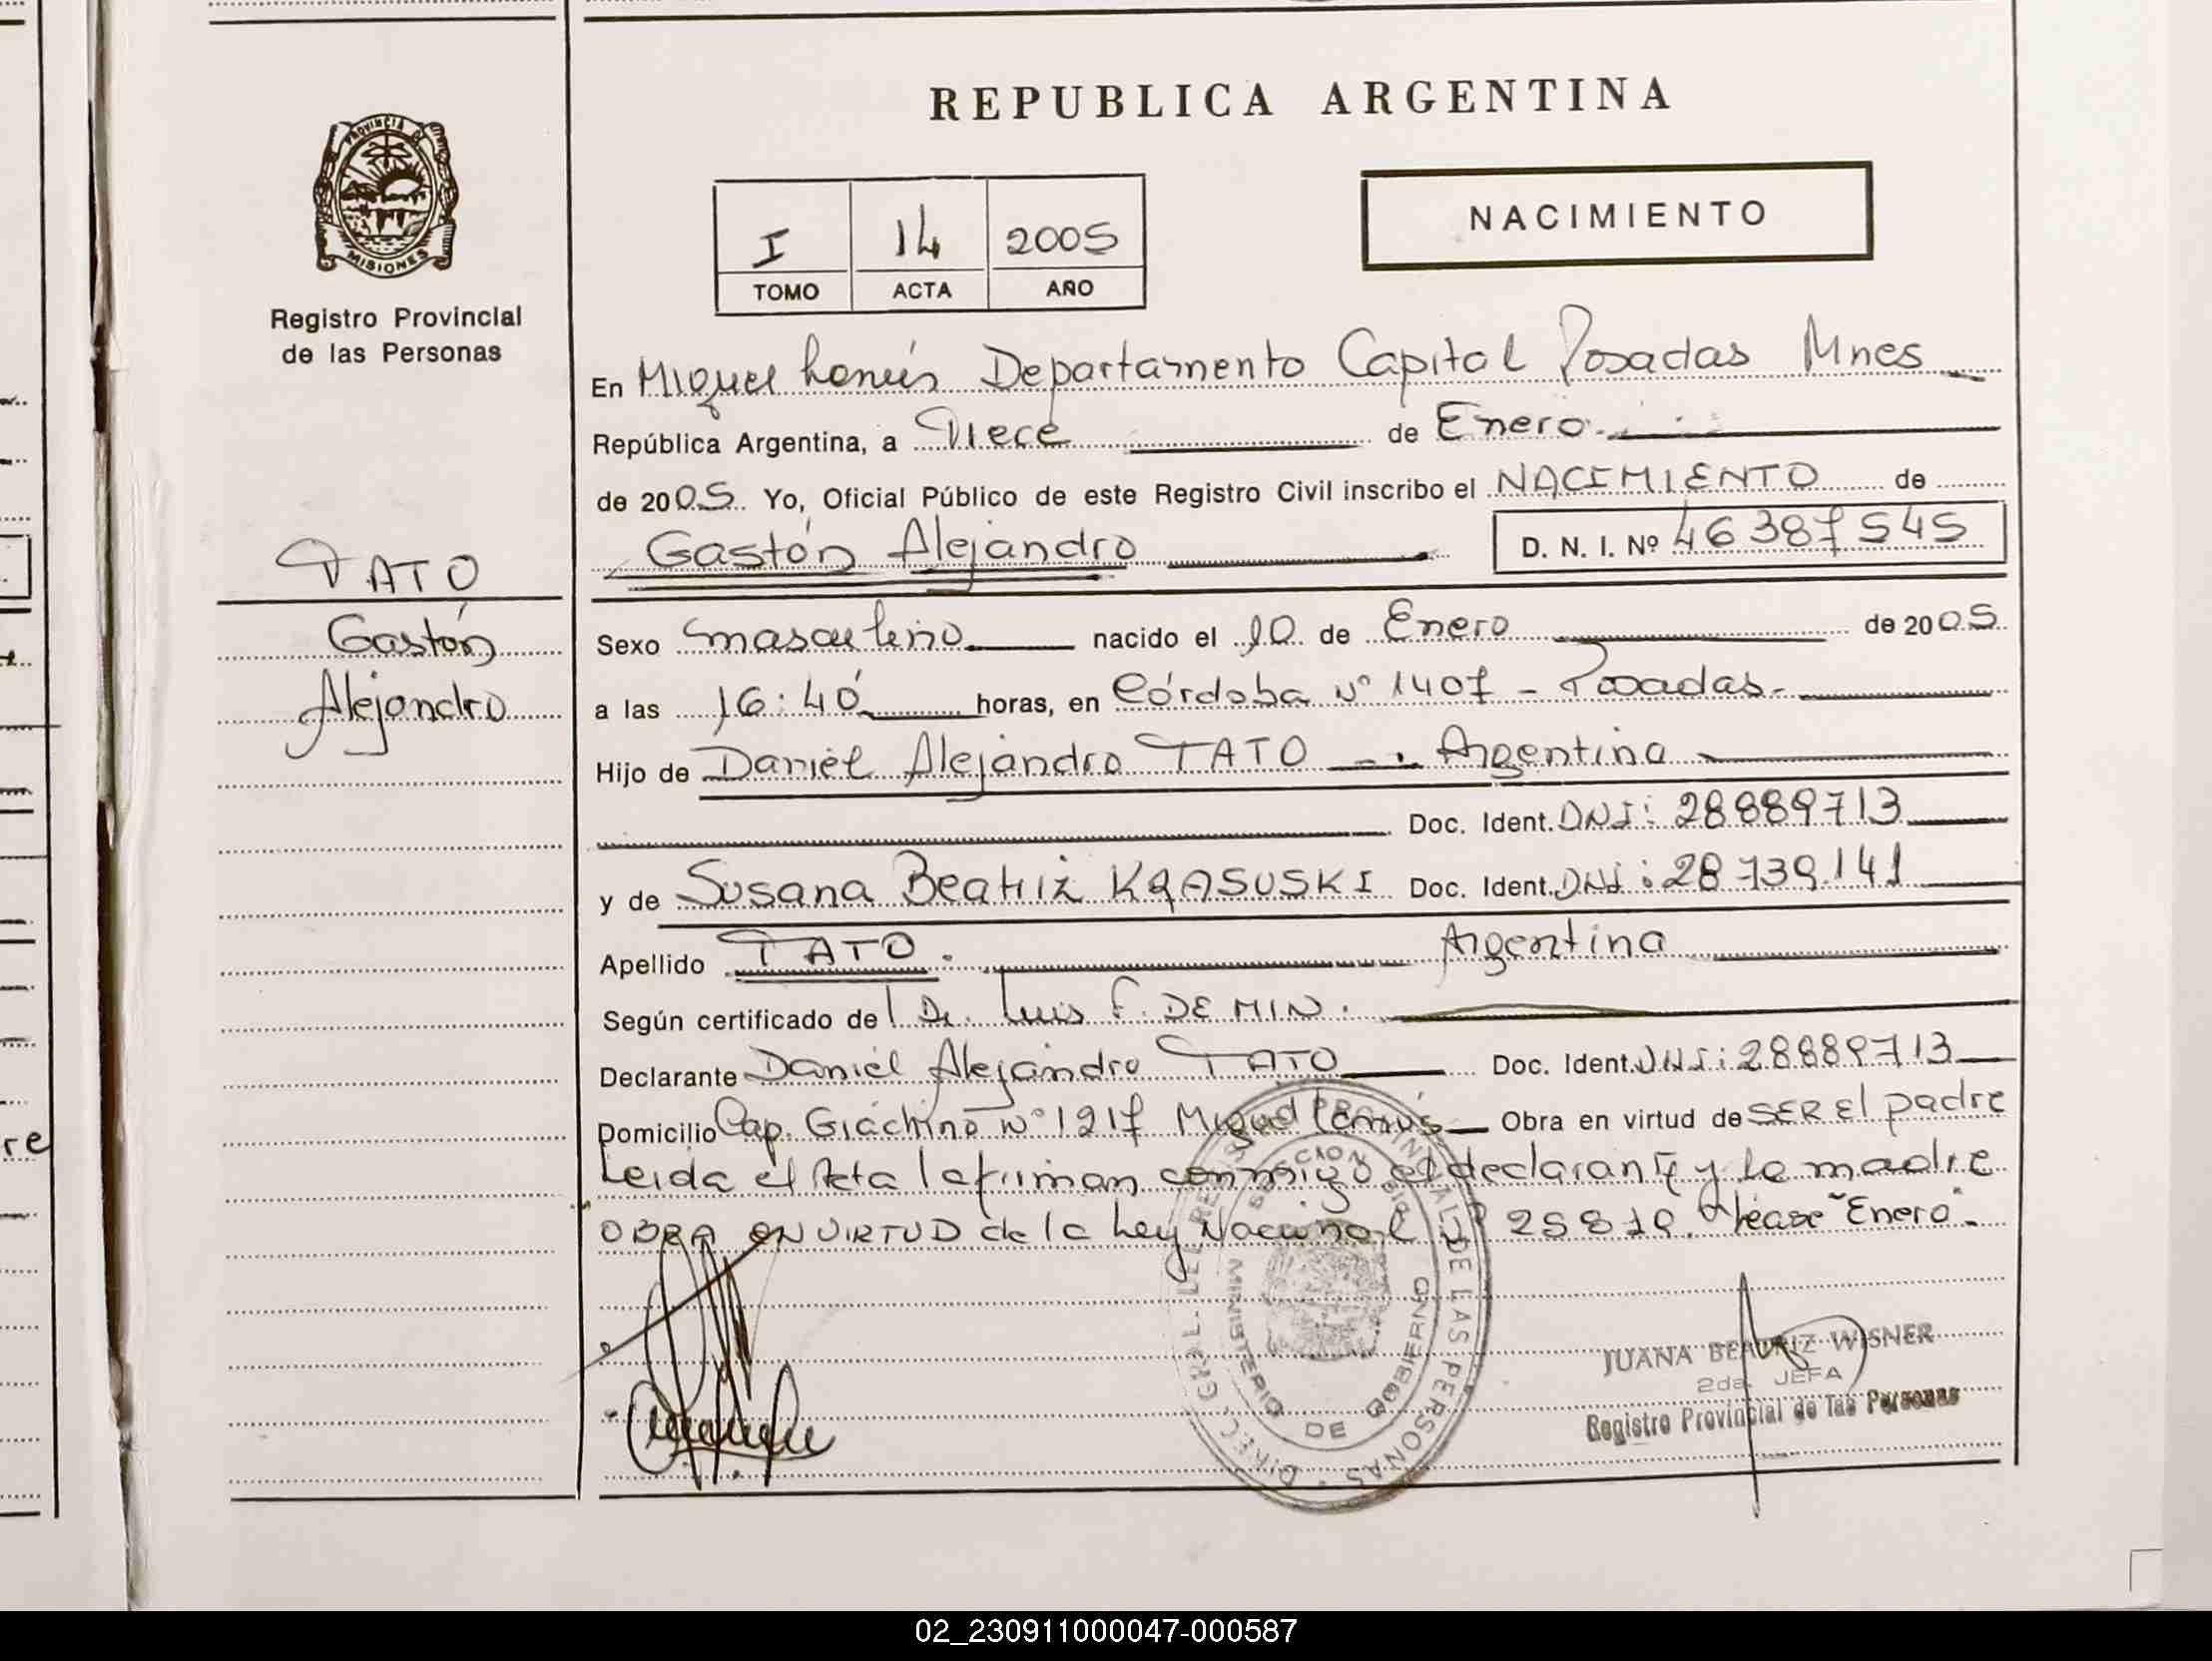 REPUBLICA ARGENTINA
PROVINCIA DE
MISIONES
Registro Provincial
de las Personas
I 14 2005
TOMO ACTA AÑO
NACIMIENTO
En Miguel Lanús Departamento Capital Posadas Mnes
República Argentina, a Trece de Enero.
de 2005. Yo, Oficial Público de este Registro Civil inscribo el NACIMIENTO de
Gastón Alejandro D. N. I. Nº 46387545
TATO
Gastón
Alejandro
Sexo masculino nacido el 10 de Enero de 2005
a las 16:40 horas, en Córdoba Nº 1407 - Posadas.
Hijo de Daniel Alejandro TATO - . Argentina
Doc. Ident. DNI: 28889713
y de Susana Beatriz KRASUSKI Doc. Ident. DNI: 28739141
Apellido TATO. Argentina
Según certificado del Dr. Luis F. DE MIN.
Declarante Daniel Alejandro TATO Doc. Ident. DNI: 28889713
Domicilio Cap. Giáchino Nº 1217 Miguel Lanús Obra en virtud de SER El padre
Leida el Acta la firman conmigo el declarante y la madre
OBRA EN VIRTUD de la Ley Nacional Nº 25819. léase "Enero".
DIREC. GRAL. DEL REGISTRO PROVINCIAL DE LAS PERSONAS
MINISTERIO DE GOBIERNO
JUANA BEATRIZ WISNER
2da. JEFA
Registro Provincial de las Personas
re
02_230911000047-000587